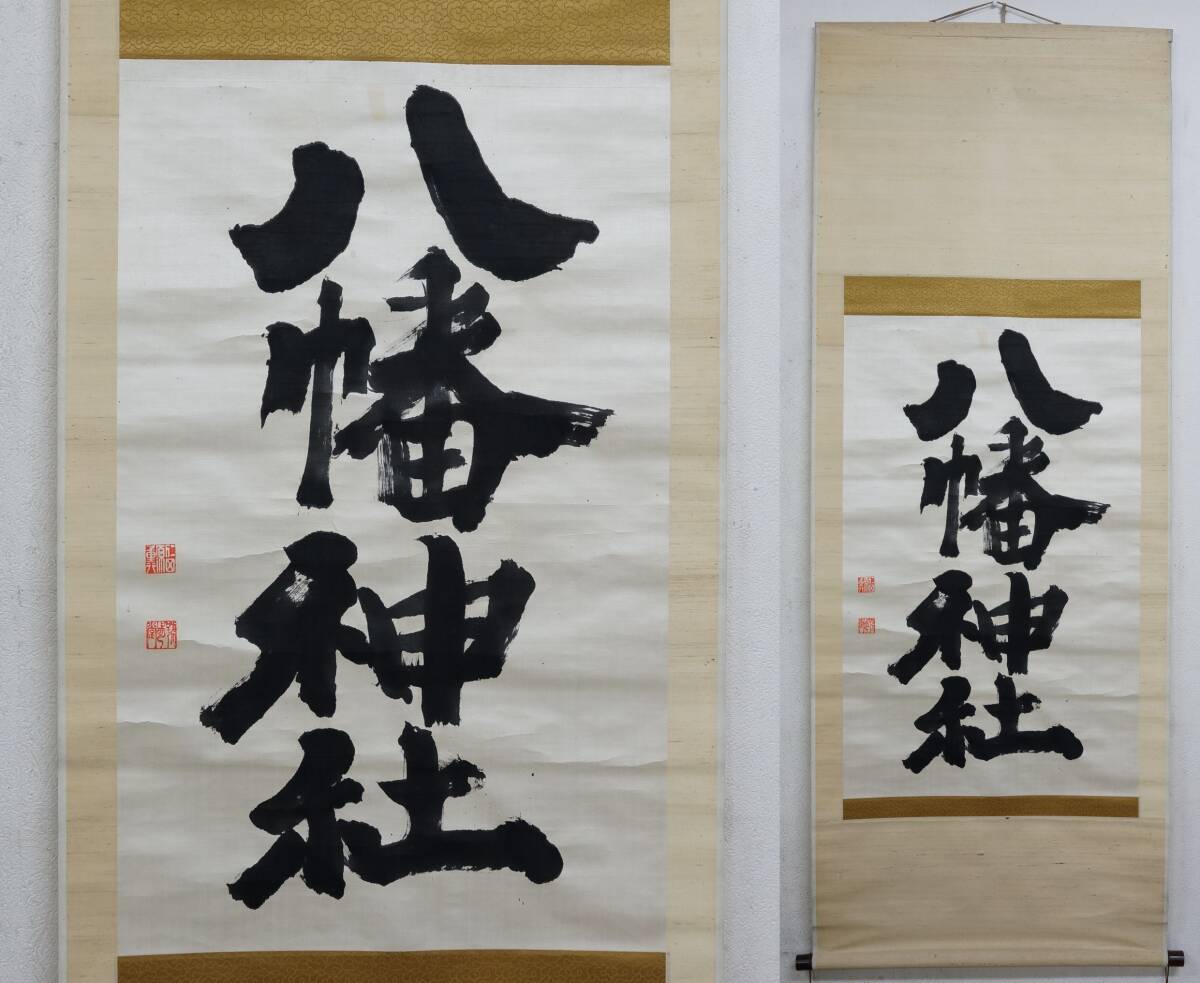 八幡神社
八幡神社